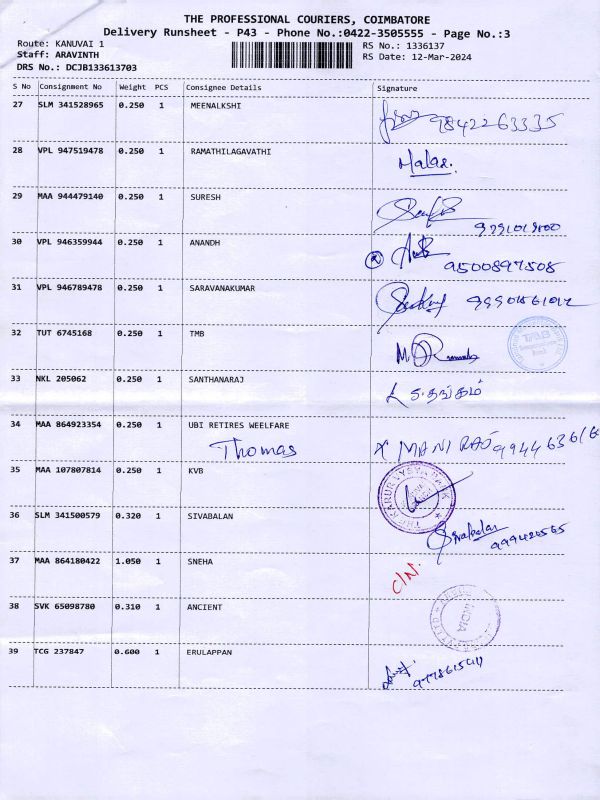 THE PROFESSIONAL COURIERS, COIMBATORE
Delivery Runsheet - P43 - Phone No.:0422-3505555 - Page No.:3
Route: KANUVAI 1
Staff: ARAVINTH
DRS No.: DCJB133613703
RS No.: 1336137
RS Date: 12-Mar-2024
S No Consignment No Weight PCS Consignee Details Signature
27 SLM 341528965 0.250 1 MEENALKSHI 9842263335
28 VPL 947519478 0.250 1 RAMATHILAGAVATHI Malar.
29 MAA 944479140 0.250 1 SURESH
30 VPL 946359944 0.250 1 ANANDH 9500897508
31 VPL 946789478 0.250 1 SARAVANAKUMAR
32 TUT 6745168 0.250 1 TMB
33 NKL 205062 0.250 1 SANTHANARAJ தங்கம்
34 MAA 864923354 0.250 1 UBI RETIRES WEELFARE
Thomas X MANI RAO 994463616
35 MAA 107807814 0.250 1 KVB
36 SLM 341500579 0.320 1 SIVABALAN Sivabalan
37 MAA 864180422 1.050 1 SNEHA C/N.
38 SVK 65098780 0.310 1 ANCIENT INDIA
39 TCG 237847 0.600 1 ERULAPPAN